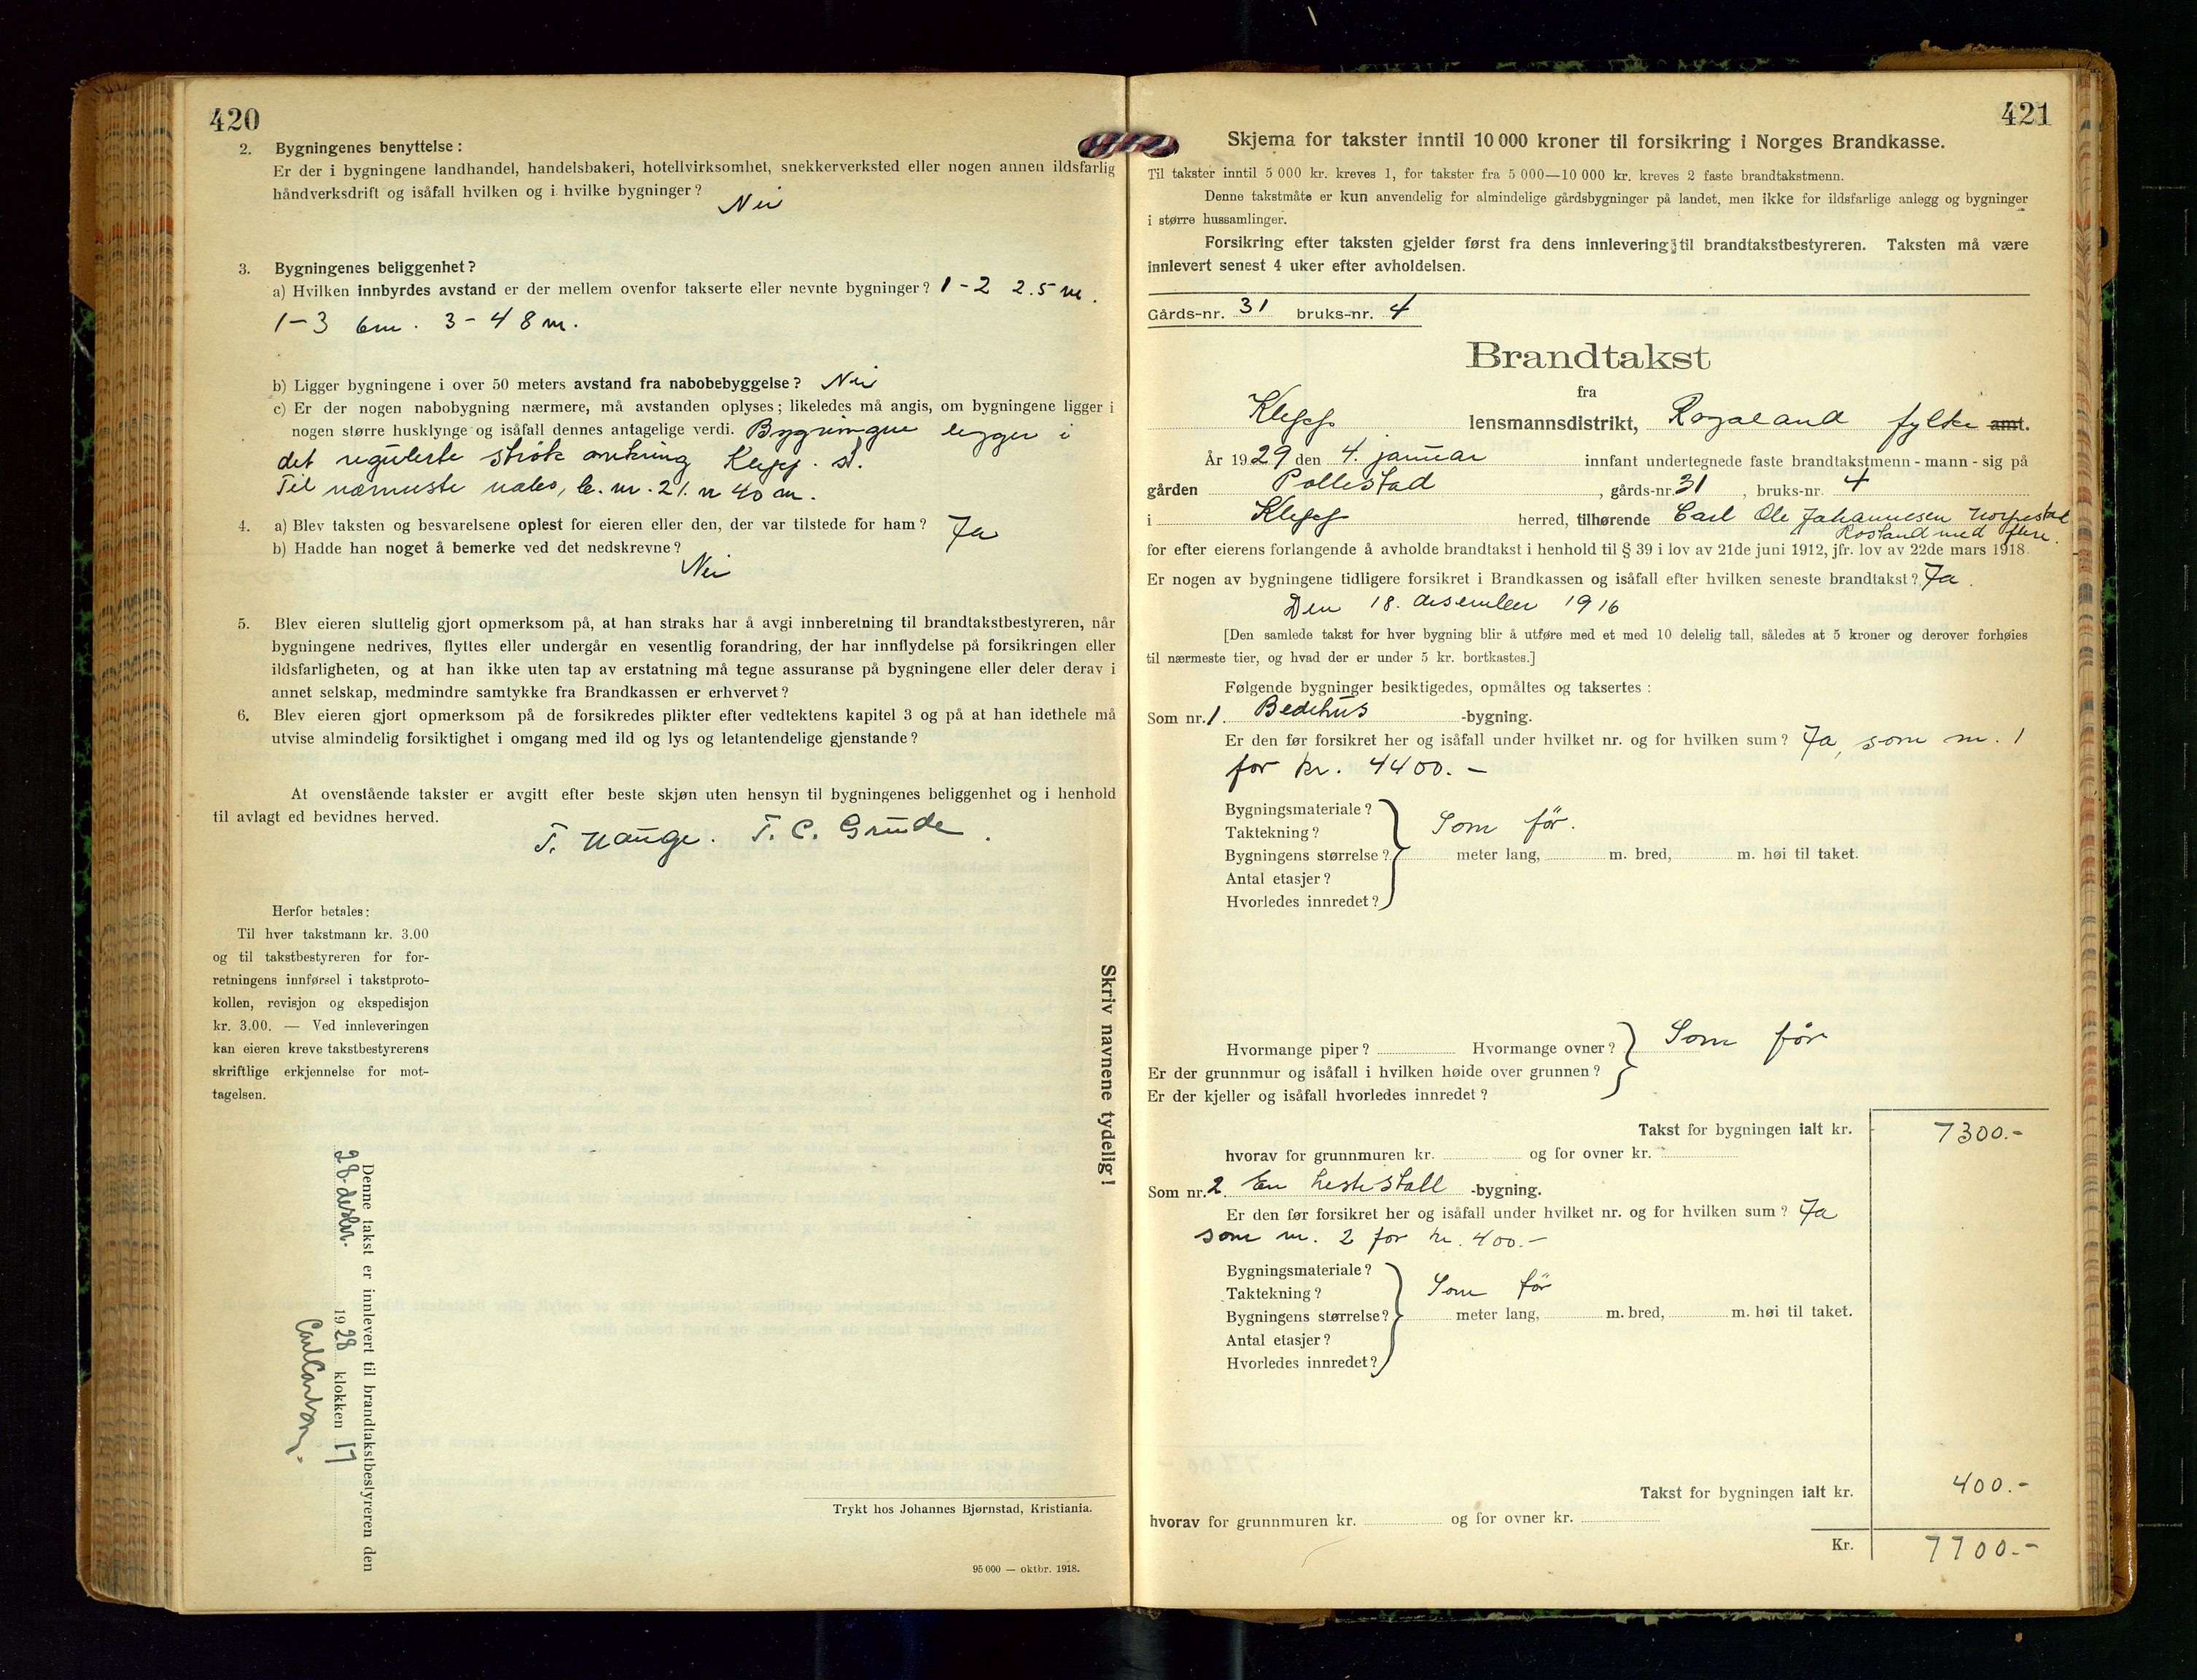 420
2. Bygningenes benyttelse:
Er der i bygningene landhandel, handelsbakeri, hotellvirksomhet, snekkerverksted eller nogen annen ildsfarlig
håndverksdrift og isåfall hvilken og i hvilke bygninger?
Nei
3. Bygningenes beliggenhet?
a) Hvilken innbyrdes avstand er der mellem ovenfor takserte eller nevnte bygninger? 1-2 2.5 m.
1-3 6m. 3-4 8 m.
b) Ligger bygningene i over 50 meters avstand fra nabobebyggelse? Nei
c) Er der nogen nabobygning nærmere, må avstanden oplyses; likeledes må angis, om bygningene ligger i
nogen større husklynge og isåfall dennes antagelige verdi. Bygningene ligger i
det regulerte strøk omkring Klepp. st.
Til nærmeste nabo, b. nr. 21. n 40 m.
4. a) Blev taksten og besvarelsene oplest for eieren eller den, der var tilstede for ham? Ja
b) Hadde han noget å bemerke ved det nedskrevne?
Nei
5. Blev eieren sluttelig gjort opmerksom på, at han straks har å avgi innberetning til brandtakstbestyreren, når
bygningene nedrives, flyttes eller undergår en vesentlig forandring, der har innflydelse på forsikringen eller
ildsfarligheten, og at han ikke uten tap av erstatning må tegne assuranse på bygningene eller deler derav i
annet selskap, medmindre samtykke fra Brandkassen er erhvervet?
6. Blev eieren gjort opmerksom på de forsikredes plikter efter vedtektens kapitel 3 og på at han idethele må
utvise almindelig forsiktighet i omgang med ild og lys og letantendelige gjenstande?
At ovenstående takster er avgitt efter beste skjøn uten hensyn til bygningenes beliggenhet og i henhold
til avlagt ed bevidnes herved.
T. Hauge. T. C. Grude.
Herfor betales:
Til hver takstmann kr. 3.00
og til takstbestyreren for for-
retningens innførsel i takstproto-
kollen, revisjon og ekspedisjon
kr. 3.00. — Ved innleveringen
kan eieren kreve takstbestyrerens
skriftlige erkjennelse for mot-
tagelsen.
Skriv navnene tydelig!
Denne takst er innlevert til brandtakstbestyreren den
28 desbr. 1928 klokken 17
Carl Carlson.
Trykt hos Johannes Bjørnstad, Kristiania.
95 000 — oktbr. 1918.
421
Skjema for takster inntil 10 000 kroner til forsikring i Norges Brandkasse.
Til takster inntil 5 000 kr. kreves 1, for takster fra 5 000—10 000 kr. kreves 2 faste brandtakstmenn.
Denne takstmåte er kun anvendelig for almindelige gårdsbygninger på landet, men ikke for ildsfarlige anlegg og bygninger
i større hussamlinger.
Forsikring efter taksten gjelder først fra dens innlevering til brandtakstbestyreren. Taksten må være
innlevert senest 4 uker efter avholdelsen.
Gårds-nr. 31 bruks-nr. 4
Brandtakst
fra
Klepp lensmannsdistrikt, Rogaland fylke amt.
År 1929 den 4. januar innfant undertegnede faste brandtakstmenn - mann - sig på
gården Pollestad, gårds-nr. 31, bruks-nr. 4
i Klepp herred, tilhørende Carl Ole Johannesen
Rosland med flere.
for efter eierens forlangende å avholde brandtakst i henhold til § 39 i lov av 21de juni 1912, jfr. lov av 22de mars 1918.
Er nogen av bygningene tidligere forsikret i Brandkassen og isåfall efter hvilken seneste brandtakst? Ja.
Den 18. desember 1916
[Den samlede takst for hver bygning blir å utføre med et med 10 delelig tall, således at 5 kroner og derover forhøies
til nærmeste tier, og hvad der er under 5 kr. bortkastes.]
Følgende bygninger besiktigedes, opmåltes og taksertes:
Som nr. 1. Bedehus -bygning.
Er den før forsikret her og isåfall under hvilket nr. og for hvilken sum? Ja, som nr. 1
for kr. 4400.-
Bygningsmateriale?
Taktekning? Som før.
Bygningens størrelse? meter lang, m. bred, m. høi til taket.
Antal etasjer?
Hvorledes innredet?
Hvormange piper? Hvormange ovner? Som før
Er der grunnmur og isåfall i hvilken høide over grunnen?
Er der kjeller og isåfall hvorledes innredet?
Takst for bygningen ialt kr. 7300.-
hvorav for grunnmuren kr. og for ovner kr.
Som nr. 2. En hestestall -bygning.
Er den før forsikret her og isåfall under hvilket nr. og for hvilken sum? Ja
som nr. 2 for kr. 400.-
Bygningsmateriale?
Taktekning? Som før
Bygningens størrelse? meter lang, m. bred, m. høi til taket.
Antal etasjer?
Hvorledes innredet?
Takst for bygningen ialt kr. 400.-
hvorav for grunnmuren kr. og for ovner kr.
Kr. 7700.-